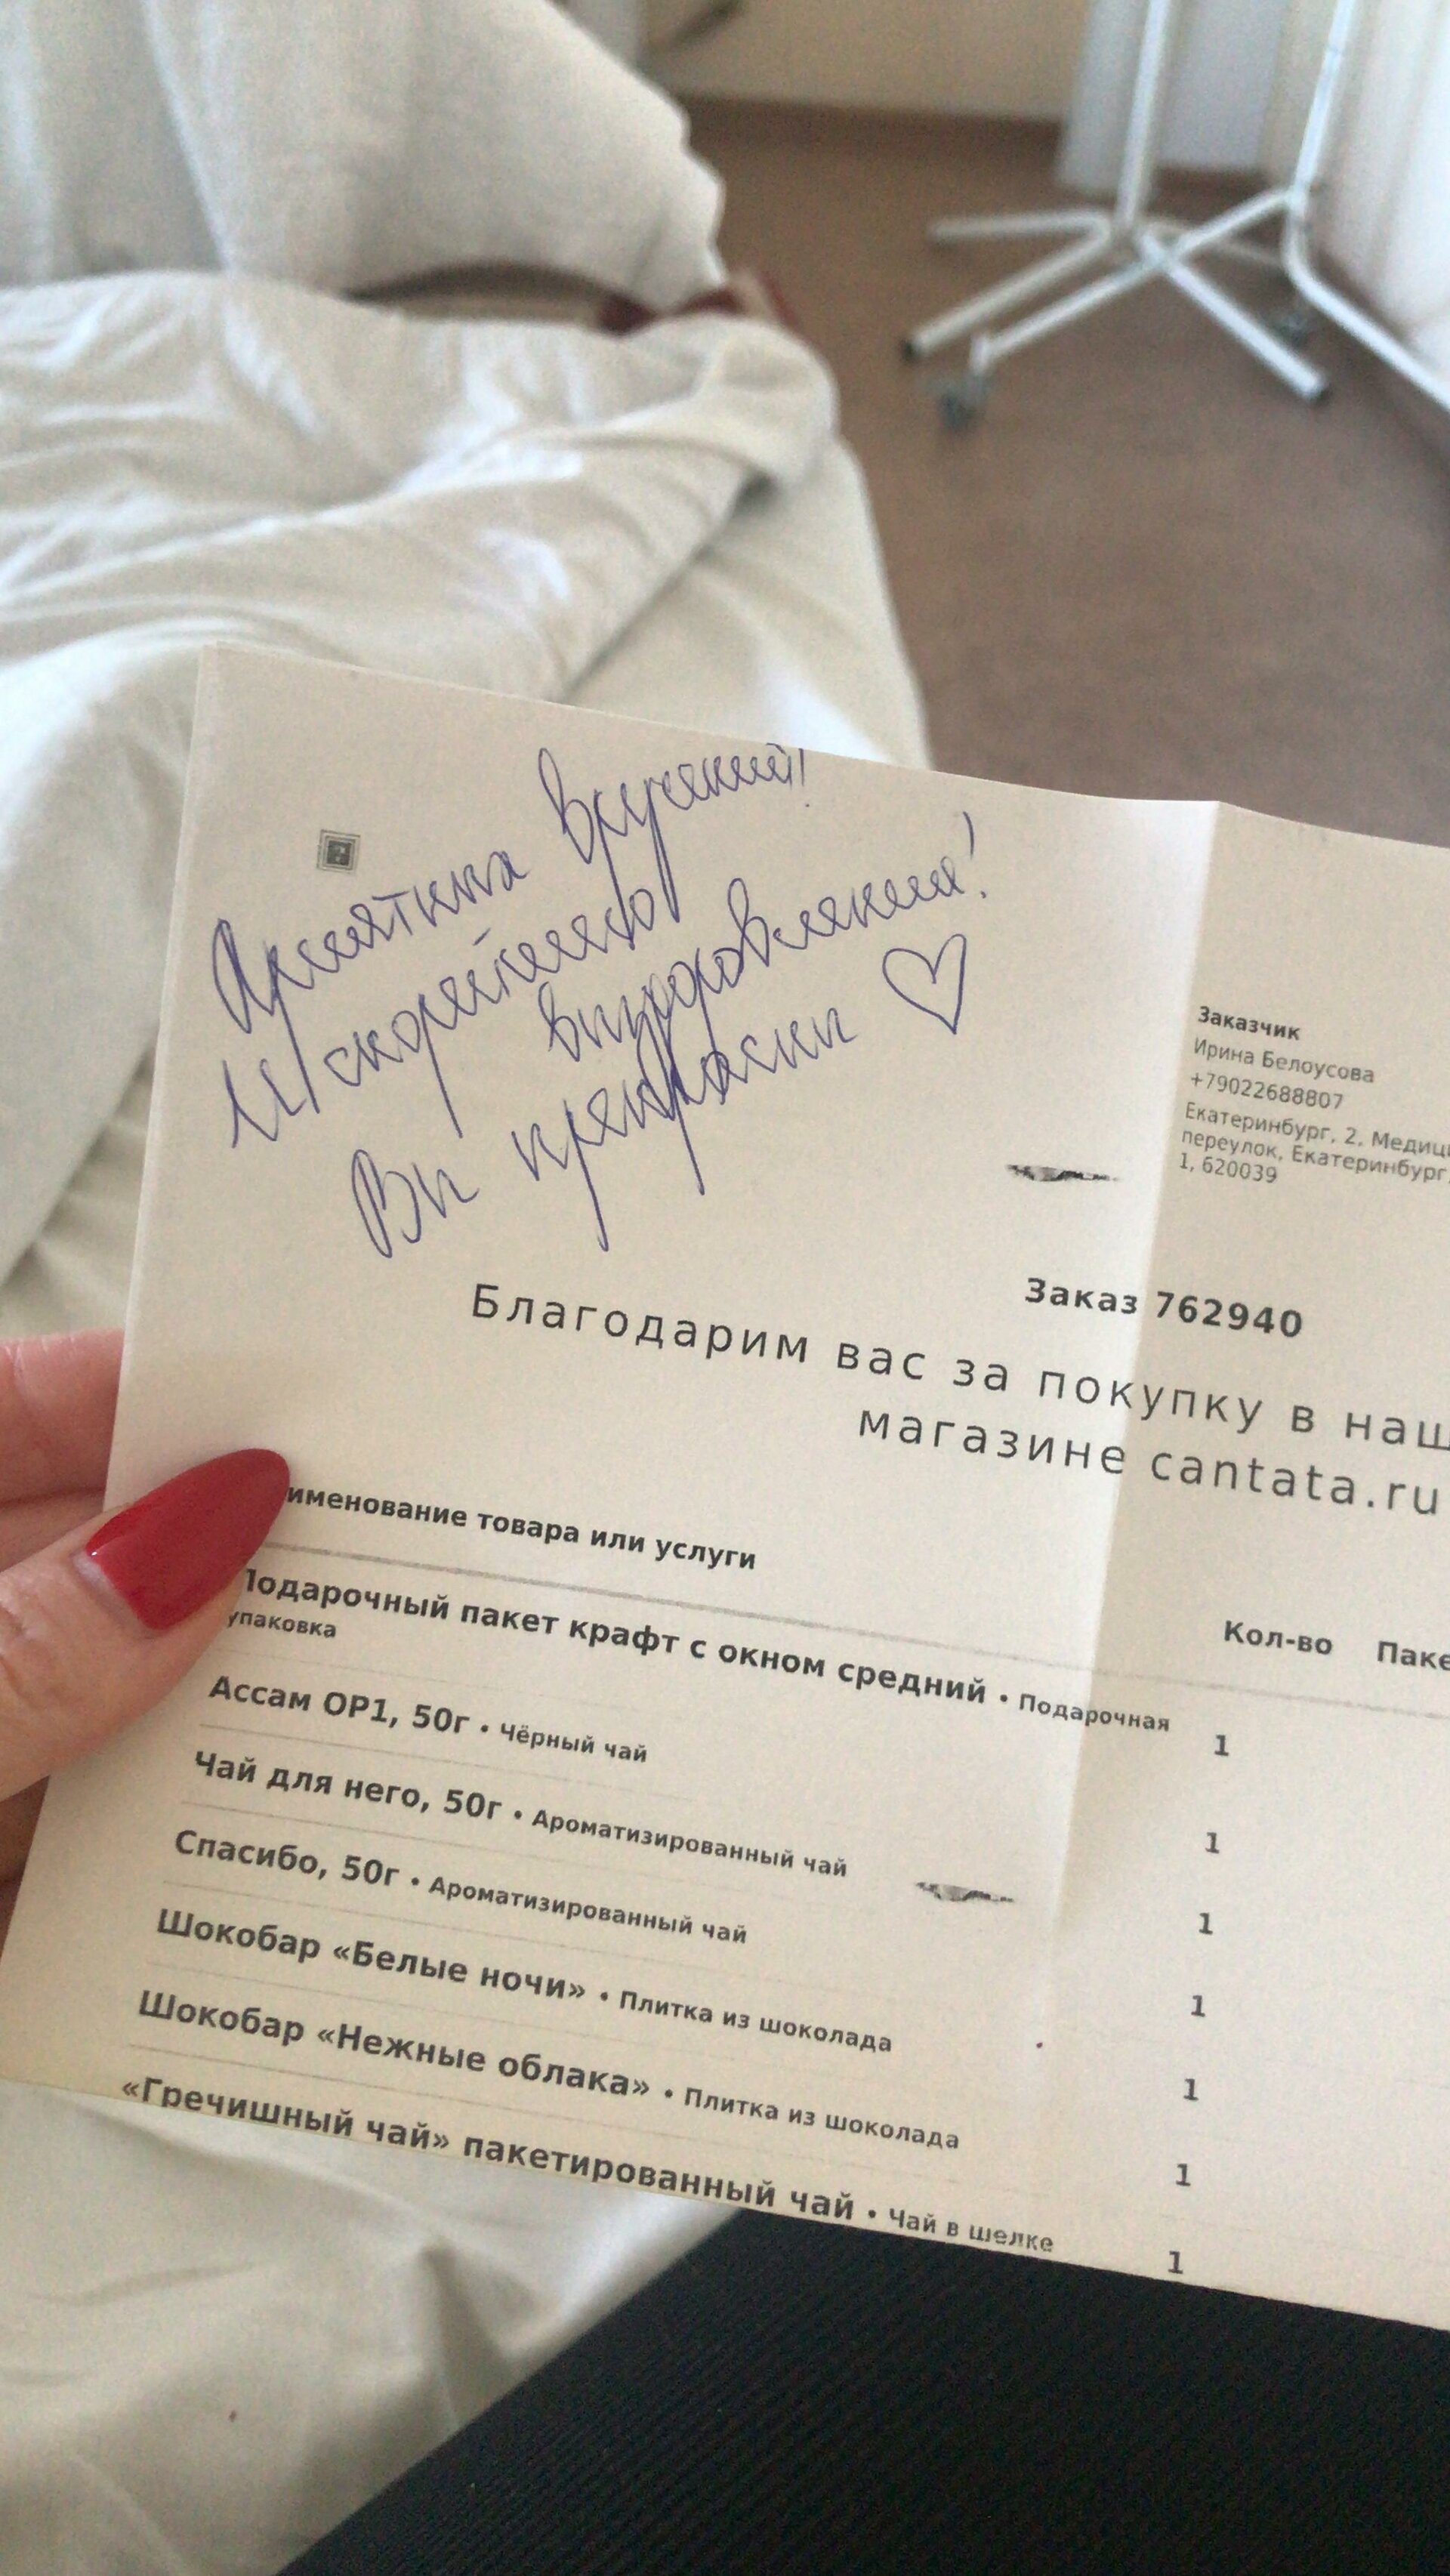 Приятных вручений!
И скорейшего
выздоровления!
Вы прекрасны ♡
Заказчик
Ирина Белоусова
+79022688807
Екатеринбург, 2. Медици
переулок, Екатеринбург,
1, 620039
Заказ 762940
Благодарим вас за покупку в наш
магазине cantata.ru
именование товара или услуги
Кол-во Паке
Подарочный пакет крафт с окном средний • Подарочная 1
упаковка
Ассам OP1, 50г • Чёрный чай 1
Чай для него, 50г • Ароматизированный чай 1
Спасибо, 50г • Ароматизированный чай 1
Шокобар «Белые ночи» • Плитка из шоколада 1
Шокобар «Нежные облака» • Плитка из шоколада 1
«Гречишный чай» пакетированный чай • Чай в шелке 1